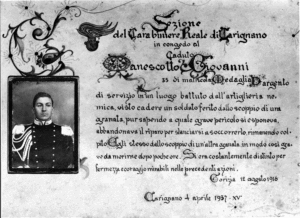 Sezione
del Carabiniere Reale di Carignano
in congedo al
Caduto
Manescotto Giovanni
di matricola Medaglia d'argento
di servizio in un luogo battuto dall'artiglieria ne-
mica, visto cadere un soldato ferito dallo scoppio di una
granata, pur sapendo a quale grave pericolo si esponeva,
abbandonava il riparo per slanciarsi a soccorrerlo, rimanendo col-
pito egli stesso dallo scoppio di un'altra granata, in modo così gra-
ve da morirne dopo poche ore. Si era costantemente distinto per
fermezza e coraggio mirabili nelle precedenti azioni.
Gorizia 12 agosto 1916
Carignano 4 aprile 1937-XV